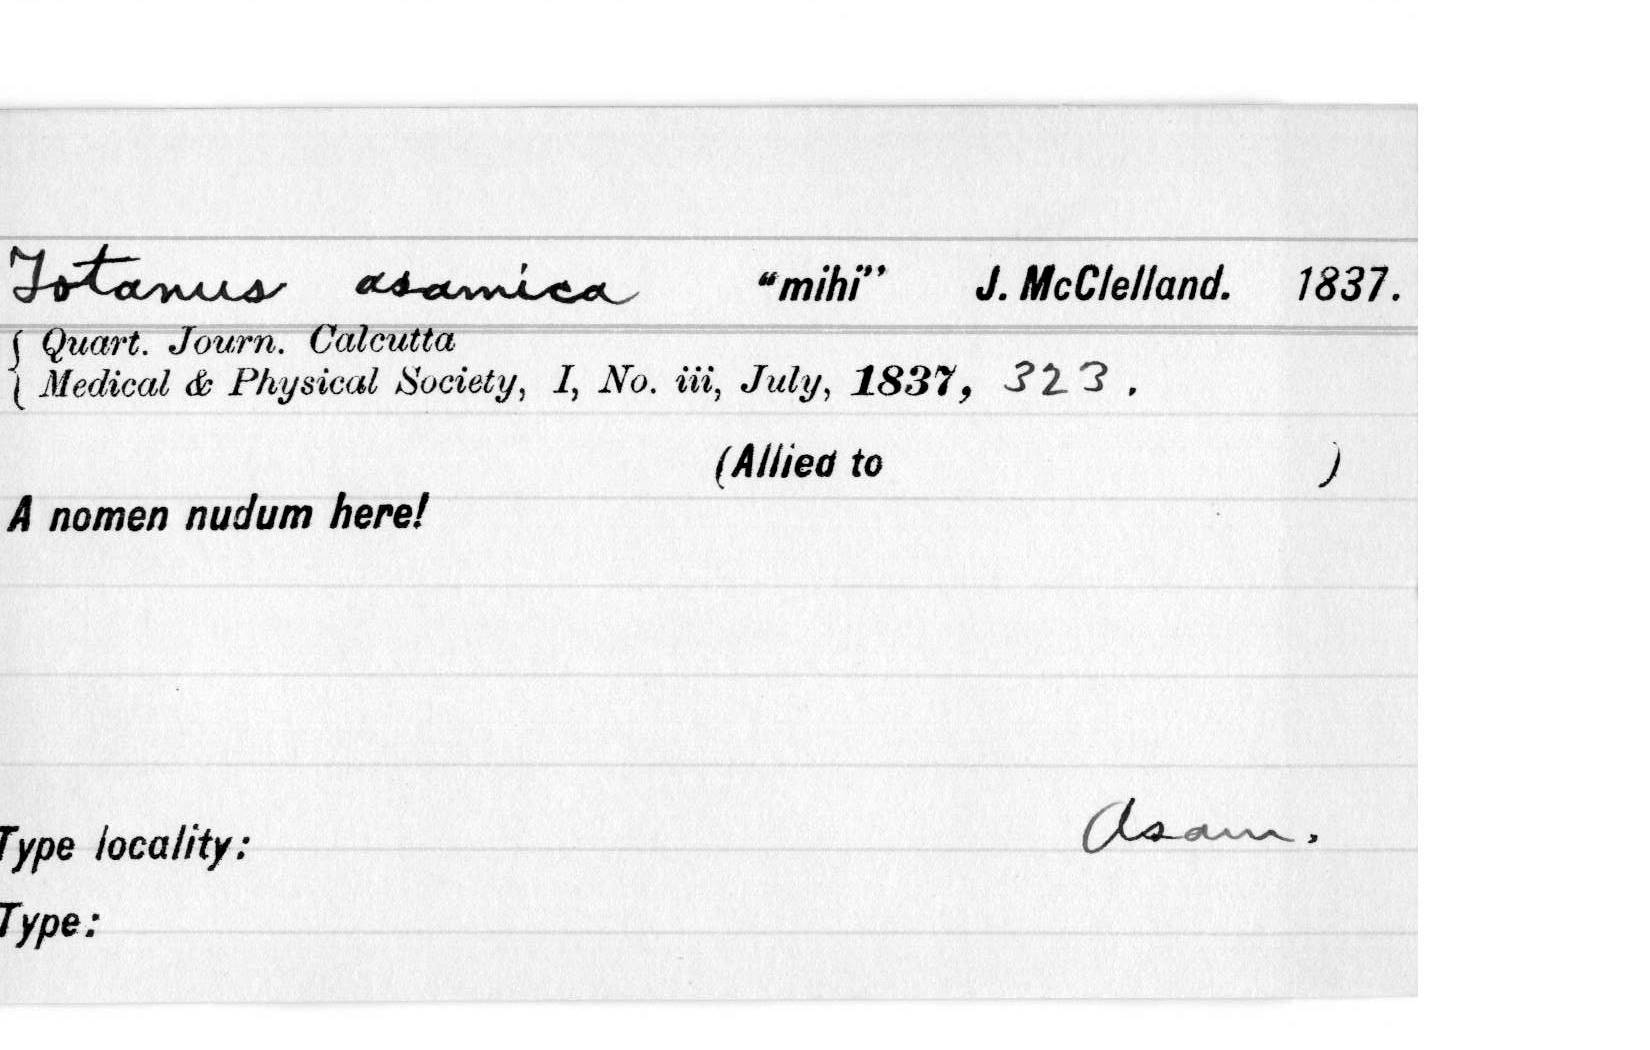 Totanus asamica "mihi" J. McClelland. 1837.
{ Quart. Journ. Calcutta
Medical & Physical Society, I, No. iii, July, 1837, 323.
(Allied to )
A nomen nudum here!
Asam.
Type locality:
Type: